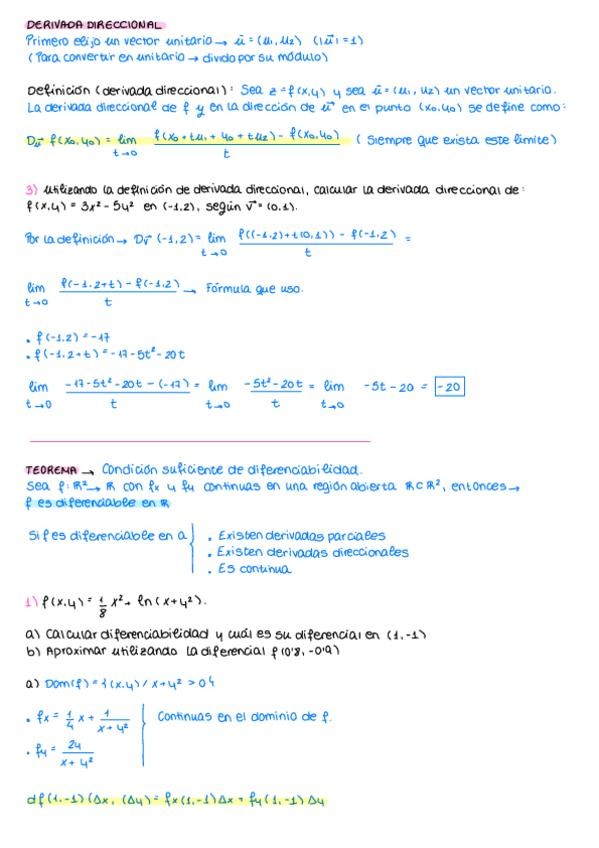 DERIVADA DIRECCIONAL
Primero elijo un vector unitario → ū = (u₁, u₂) (|ū| = 1)
(Para convertir en unitario → divido por su módulo)
Definición (derivada direccional): Sea z = f(x,y) y sea ū = (u₁, u₂) un vector unitario.
La derivada direccional de f y en la dirección de ū en el punto (x₀,y₀) se define como:
Dū f(x₀,y₀) = lim t→0 f(x₀ + tu₁ + y₀ + tu₂) - f(x₀,y₀) / t (Siempre que exista este límite)
3) Utilizando la definición de derivada direccional, calcular la derivada direccional de:
f(x,y) = 3x² - 5y² en (-1,2), según v⃗ = (0,1).
Por la definición → Dv⃗ (-1,2) = lim t→0 f((-1,2) + t(0,1)) - f(-1,2) / t =
lim t→0 f(-1,2+t) - f(-1,2) / t → Fórmula que uso.
• f(-1,2) = -17
• f(-1,2+t) = -17 - 5t² - 20t
lim t→0 -17 - 5t² - 20t - (-17) / t = lim t→0 -5t² - 20t / t = lim t→0 -5t - 20 = -20
TEOREMA → Condición suficiente de diferenciabilidad.
Sea f: ℝ² → ℝ con fx y fy continuas en una región abierta R ⊂ ℝ², entonces →
f es diferenciable en R
Si f es diferenciable en a
• Existen derivadas parciales
• Existen derivadas direccionales
• Es continua
1) f(x,y) = 1/8 x² + ln(x + y²).
a) Calcular diferenciabilidad y cuál es su diferencial en (1,-1)
b) Aproximar utilizando la diferencial f(0'8, -0'9)
a) Dom(f) = {(x,y) / x + y² > 0}
• fx = 1/4 x + 1 / x + y²
Continuas en el dominio de f.
• fy = 2y / x + y²
df(1,-1)(Δx, (Δy) = fx(1,-1)Δx + fy(1,-1)Δy